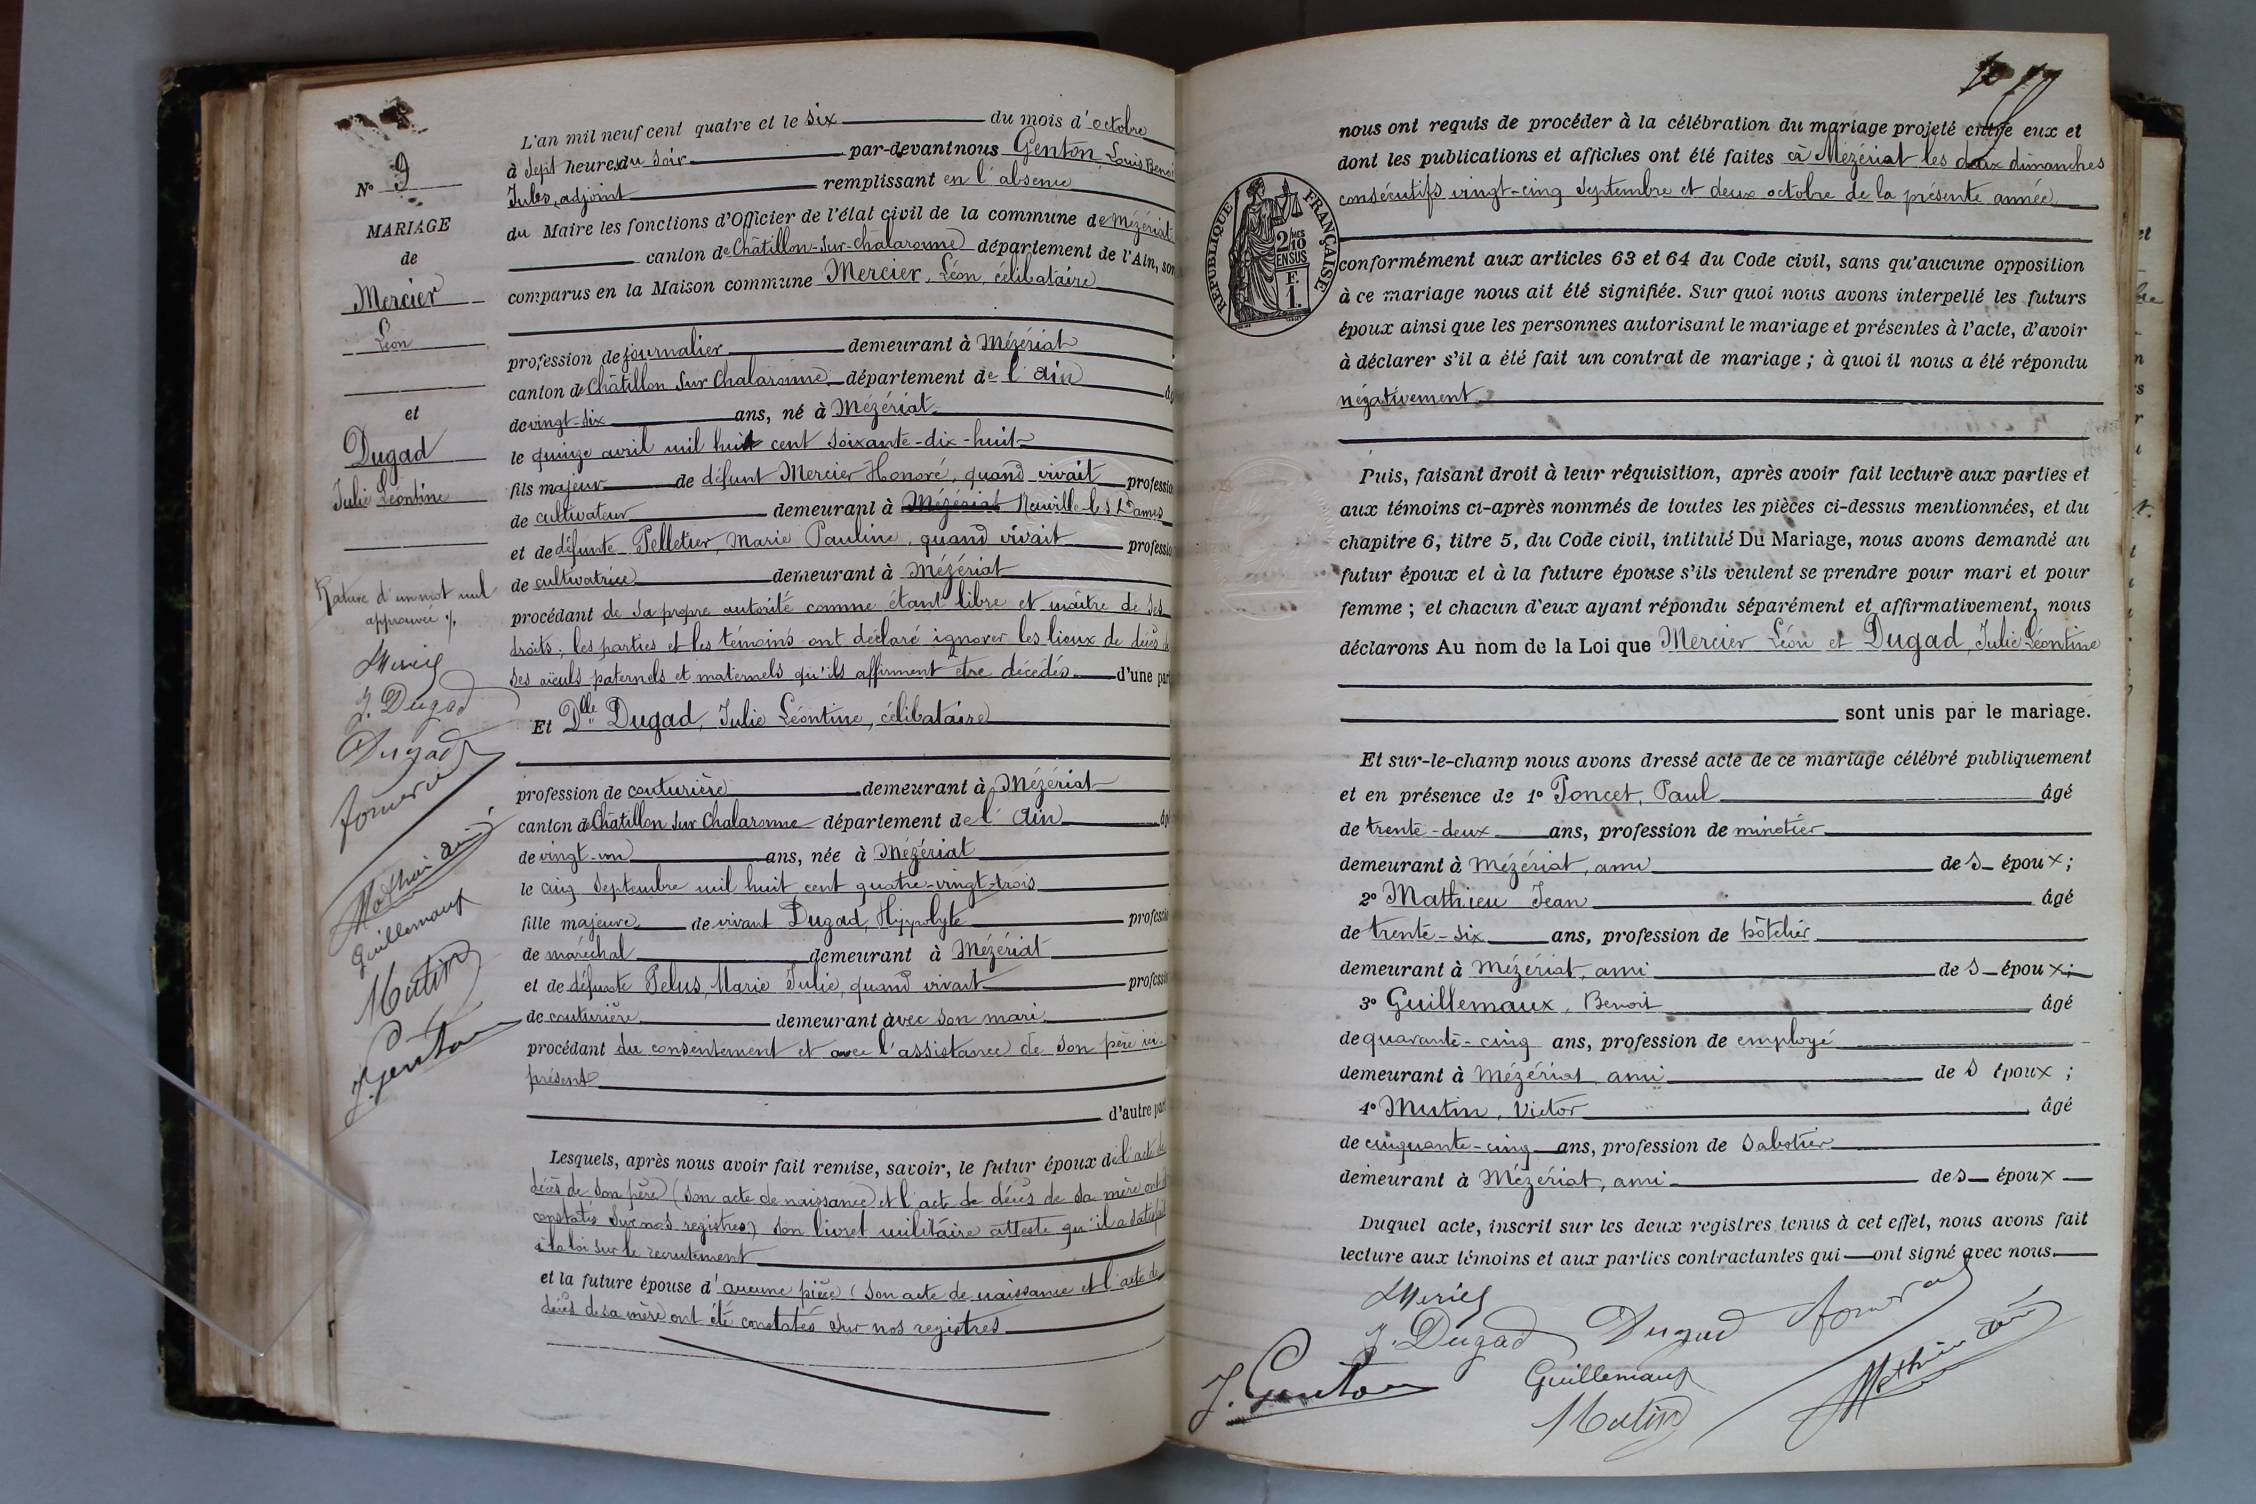 N° 9
MARIAGE
de
Mercier
Léon
et
Dugad
Julie Léontine
Rature d'un mot nul
approuvée
J. Dugad
Dugad
Guillemaux
Mutin
J. Genton
L'an mil neuf cent quatre et le six du mois d'octobre
à sept heures du soir par-devant nous Genton, Louis Benoi
Jules, adjoint remplissant en l'absence
du Maire les fonctions d'Officier de l'état civil de la commune de Mézériat
canton de Châtillon-sur-Chalaronne département de l'Ain, son
comparus en la Maison commune Mercier, Léon, célibataire
profession de journalier demeurant à Mézériat
canton de Châtillon sur Chalaronne département de l'Ain âg
de vingt-six ans, né à Mézériat
le quinze avril mil huit cent soixante-dix-huit
fils majeur de défunt Mercier Honoré, quand vivait professio
de cultivateur demeurant à Mézériat Neuville-les-Dames
et de défunte Pelletier, Marie Pauline, quand vivait professio
de cultivatrice demeurant à Mézériat
procédant de sa propre autorité comme étant libre et maître de ses
droits; les parties et les témoins ont déclaré ignorer les lieux de décès de
ses aïeuls paternels et maternels qu'ils affirment être décédés d'une par
Et Dlle Dugad, Julie Léontine, célibataire
profession de couturière demeurant à Mézériat
canton de Châtillon sur Chalaronne département de l'Ain âg
de vingt-un ans, née à Mézériat
le cinq septembre mil huit cent quatre-vingt-trois
fille majeure de vivant Dugad, Hippolyte professio
de maréchal demeurant à Mézériat
et de défunte Pelus, Marie Julie, quand vivait professio
de couturière demeurant avec son mari
procédant du consentement et avec l'assistance de son père ici
présent
d'autre part
Lesquels, après nous avoir fait remise, savoir, le futur époux de l'acte de
décès de son père (son acte de naissance et l'acte de décès de sa mère ont été
constatés sur nos registres) son livret militaire atteste qu'il a satisfait
à la loi sur le recrutement
et la future épouse d'aucune pièce (son acte de naissance et l'acte de
décès de sa mère) ont été constatés sur nos registres
nous ont requis de procéder à la célébration du mariage projeté entre eux et
dont les publications et affiches ont été faites à Mézériat les deux dimanches
consécutifs vingt-cinq septembre et deux octobre de la présente année
RÉPUBLIQUE FRANÇAISE
2/10
EN SUS
F.
1.
conformément aux articles 63 et 64 du Code civil, sans qu'aucune opposition
à ce mariage nous ait été signifiée. Sur quoi nous avons interpellé les futurs
époux ainsi que les personnes autorisant le mariage et présentes à l'acte, d'avoir
à déclarer s'il a été fait un contrat de mariage ; à quoi il nous a été répondu
négativement
Puis, faisant droit à leur réquisition, après avoir fait lecture aux parties et
aux témoins ci-après nommés de toutes les pièces ci-dessus mentionnées, et du
chapitre 6, titre 5, du Code civil, intitulé Du Mariage, nous avons demandé au
futur époux et à la future épouse s'ils veulent se prendre pour mari et pour
femme ; et chacun d'eux ayant répondu séparément et affirmativement, nous
déclarons Au nom de la Loi que Mercier Léon et Dugad, Julie Léontine
sont unis par le mariage.
Et sur-le-champ nous avons dressé acte de ce mariage célébré publiquement
et en présence de 1° Poncet, Paul âgé
de trente-deux ans, profession de minotier
demeurant à Mézériat, ami des époux ;
2° Mathieu Jean âgé
de trente-six ans, profession de hôtelier
demeurant à Mézériat, ami des époux ;
3° Guillemaux, Benoit âgé
de quarante-cinq ans, profession de employé
demeurant à Mézériat ami des époux ;
4° Mutin, Victor âgé
de cinquante-cinq ans, profession de sabotier
demeurant à Mézériat, ami des époux
Duquel acte, inscrit sur les deux registres tenus à cet effet, nous avons fait
lecture aux témoins et aux parties contractantes qui ont signé avec nous.
J. Dugad Dugad
J. Genton Guillemaux
Mutin